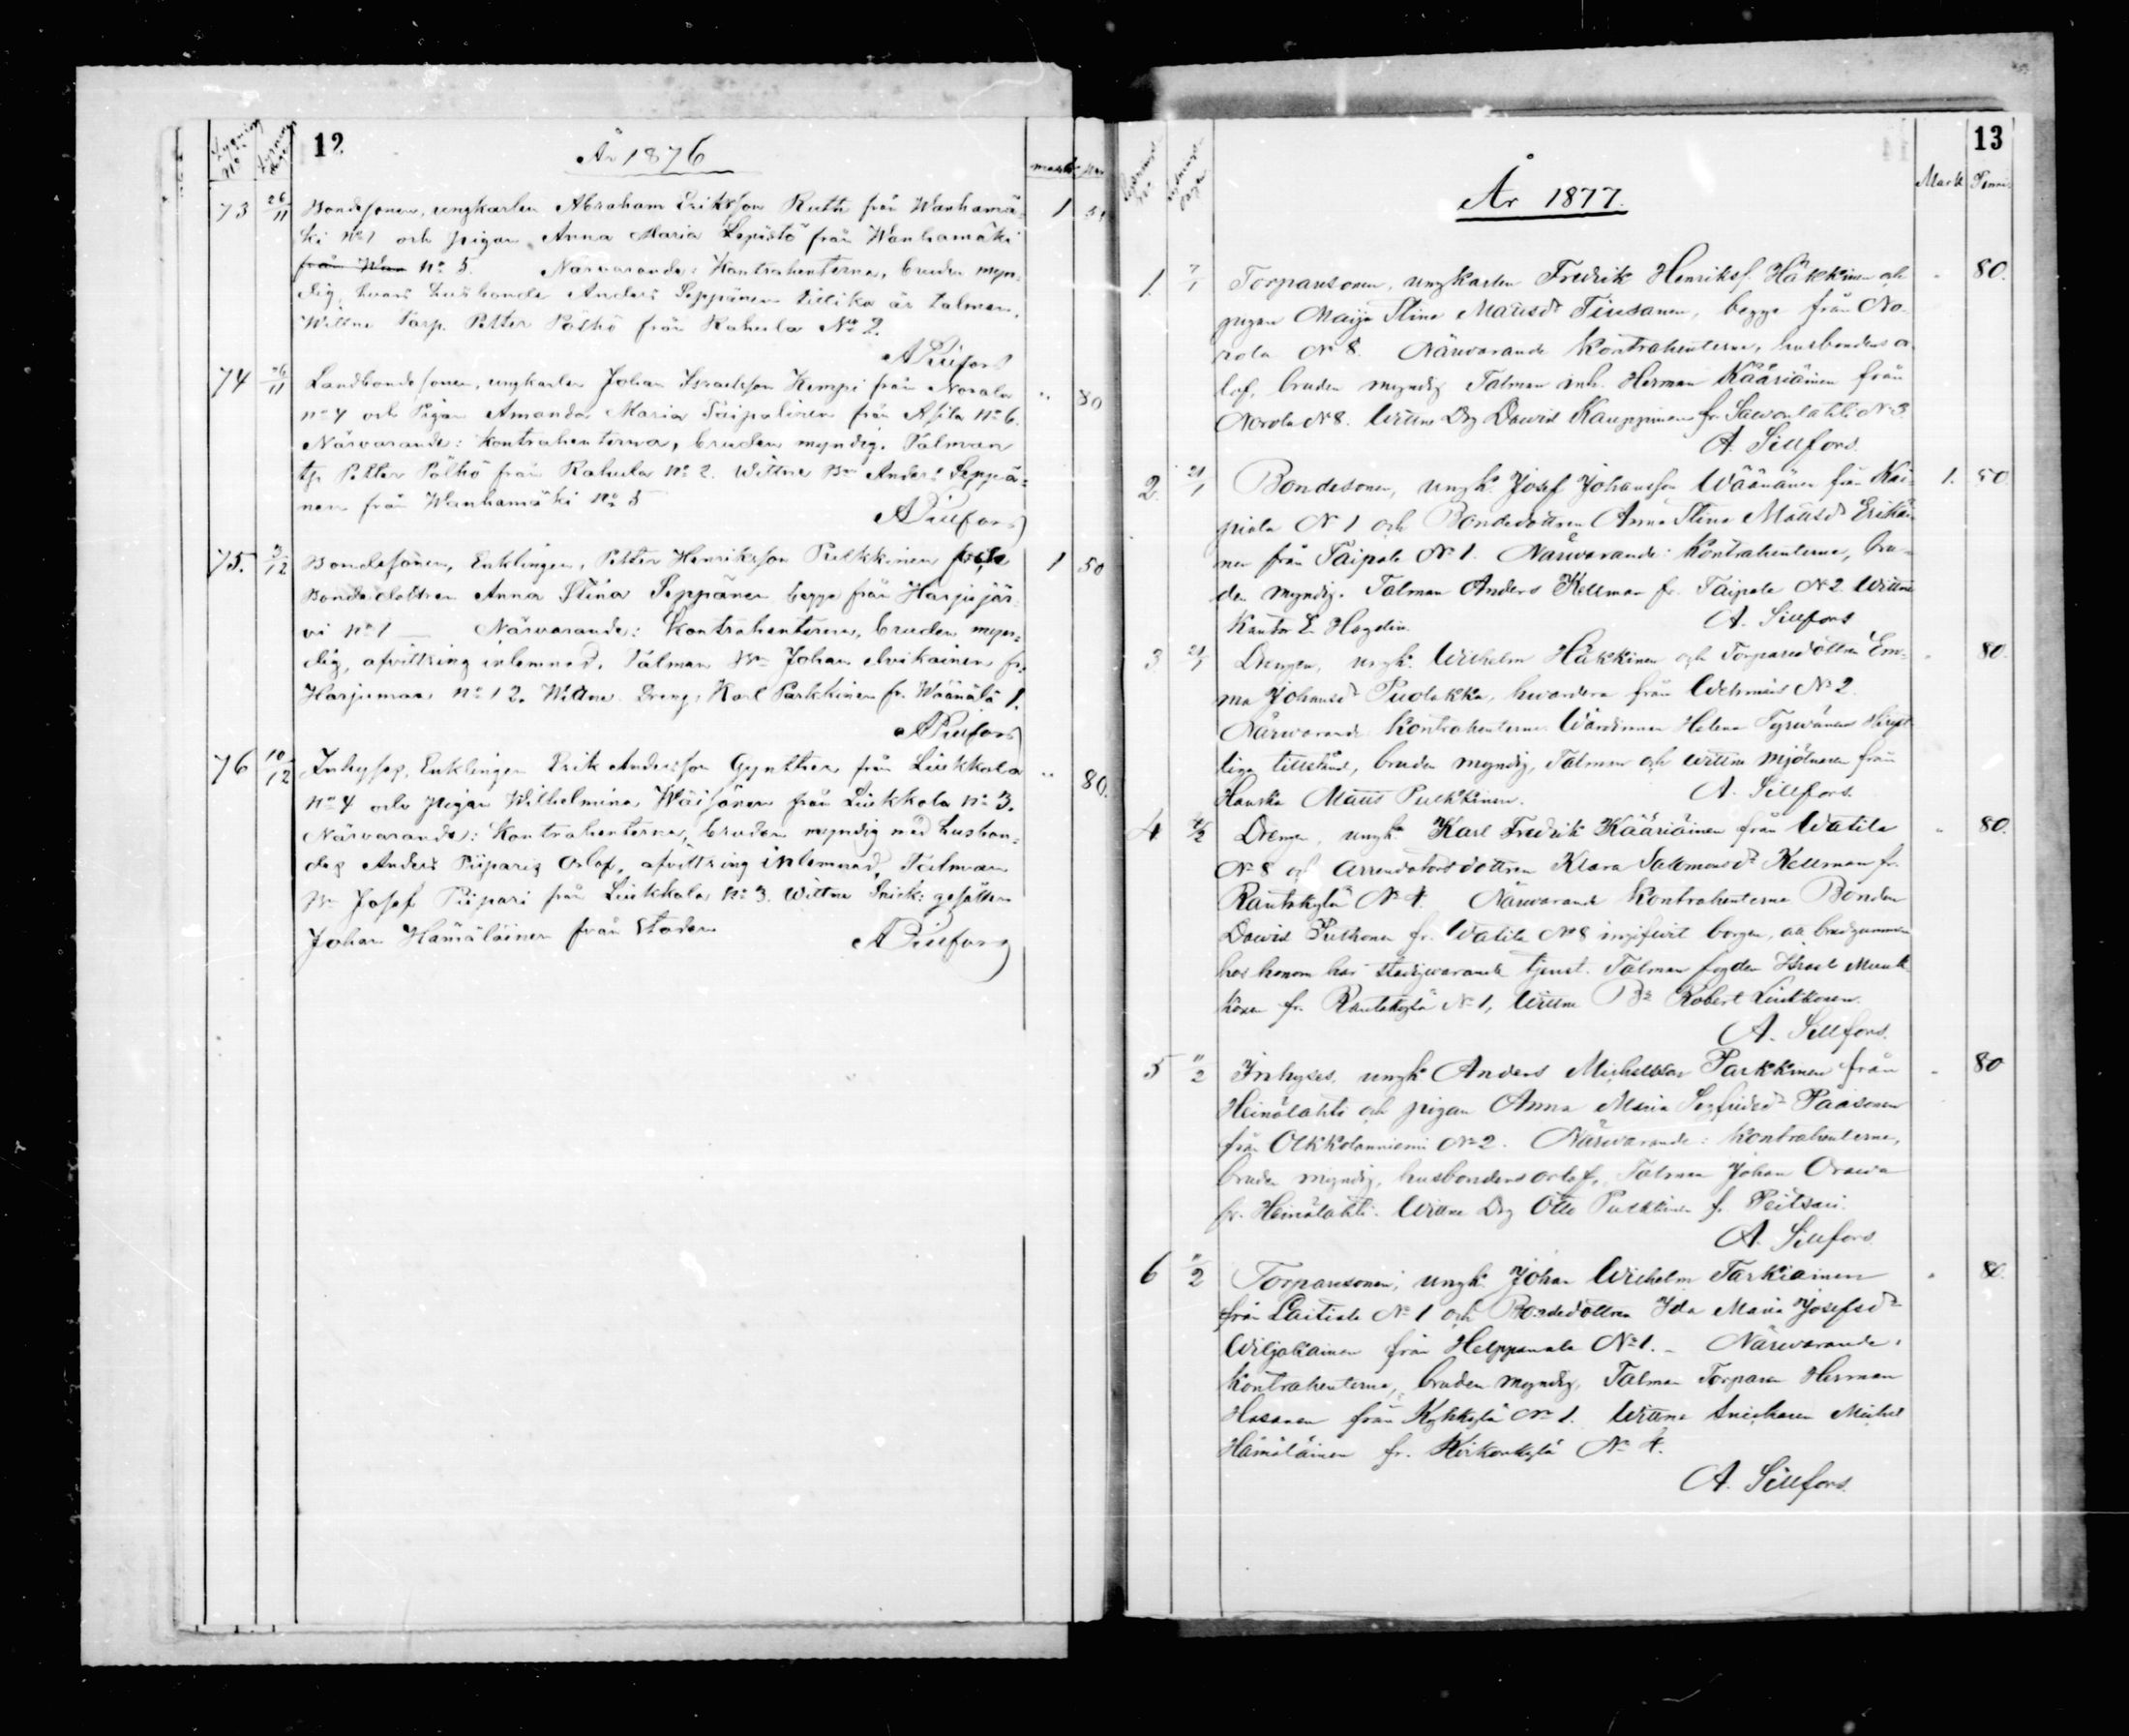 12
År 1876
mark
73 26/11 Bondesonen, ungkarlen Abraham Eriksson Ruth från Wanhamä- 1
ki No 1 och pigan Anna Maria Lepistö från Wanhamäki
från Wan No 5. Närvarande: Kontrahenterna, bruden myn-
dig, hvars husbonde Anders Seppänen tillika är talman.
Wittne Torp. Petter Pöthö från Rahula No 2.
A Sillfors
74 26/11 Landbondesonen, ungkarlen Johan Israelsson Kempi från Norola " 80
No 4 och Pigan Amanda Maria Taipalinen från Asila No 6.
Närvarande: Kontrahenterna, bruden myndig. Talman
tp Petter Pöthö från Rahula No 2. Wittne Bn Anders Seppä-
nen från Wanhamäki No 5
A Sillfors
75. 3/12 Bondesonen, Enklingen, Petter Henriksson Pulkkinen 1 50
Bondedottren Anna Stina Seppänen begge från Harjujär-
vi No 1 Närvarande: Kontrahenterna, bruden myn-
dig, afvittring inlemnad. Talman Bn Johan Avikainen fr.
Harjumaa No 12. Wittne Dreng. Karl Parkkinen fr. Wäänälä 1.
A Sillfors
76 10/12 Inhyses, Enklingen Erik Andersson Gynther från Liukkola " 80.
No 4 och Pigan Wilhelmina Wäisänen från Liukkola No 3.
Närvarande: Kontrahenterna, bruden myndig med husbon-
des Anders Piiparis Orlof, afvittring inlemnad, Talman
Bn Josef Piipari från Liukkola No 3. Wittne Snick: gesällen
Johan Hämäläinen från Staden
A Sillfors
13
År 1877.
Mark Penni
1. 7/1 Torparesonen, ungkarlen Fredrik Henrikss. Häkkinen och " 80.
pigan Maija Stina Matsdr Tiusanen, begge från No-
rola No 8. Närwarande Kontrahenterne, husbondens or-
lof, bruden myndig Talman inh. Herman Kääriäinen från
Norola No 8. Wittne Dg Dawid Kauppinen fr. Sawonlahti No 3
A. Sillfors.
2. 21/1 Bondesonen, ungk. Josef Johansson Wäänänen från Kai- 1. 50
piala No 1 och Bondedottren Anna Stina Matsdr Erikäi-
nen från Taipale No 1. Närwarande: Kontrahenterne, bru-
den myndig. Talman Anders Kellman fr. Taipale No 2 Wittne
Kantor E. Hagelin. A. Sillfors
3. 21/1 Drengen, ungk. Wilhelm Häkkinen och Torparedottren Em- " 80.
ma Johansdr Puolakka, hwardera från Wehmais No 2.
Närwarande Kontrahenterne Wärdinnan Helena Tyrwäinens skrift-
liga tillstånd, bruden myndig, Talman och wittne mjölnaren från
Hanska Matts Pulkkinen. A. Sillfors.
4 4/2 Drengen, ungk. Karl Fredrik Kääriäinen från Watila " 80.
No 8 och Arrendatorsdottren Klara Salomonsdr Kellman fr.
Rantakylä No 4. Närwarande Kontrahenterne Bonden
Dawid fr. Watila No 8 ingifwit borgen, att brudgummen
hos honom har stadigwarande tjenst. Talman fogden Israel Munk-
konen fr. Rantakylä No 1, Wittne Bn Robert Liukkonen.
A. Sillfors.
5 11/2 Inhyses, ungk Anders Michelsson Parkkinen från " 80
Heinälahti och pigan Anna Maria Sigfridsdr Paasonen
från Olkkolanniemi No 2. Närwarande: Kontrahenterne,
bruden myndig, husbondens orlof, Talman Johan Orawa
fr. Heinälahti. Wittne Dg Otto Pulkkinen f. Peitsari.
A. Sillfors
6 11/2 Torparesonen, ungk. Johan Wilhelm Tarkiainen " 80.
från Laitiala No 1 och Bondedottren Ida Maria Josefsdr
Wiljakainen från Helppanala No 1. - Närwarande:
Kontrahenterne, bruden myndig, Talman Torparen Herman
Hasanen från Kyhkylä No 1. Wittne Snickaren Michel
Hämäläinen fr. Kirkonkylä No 4.
A. Sillfors.